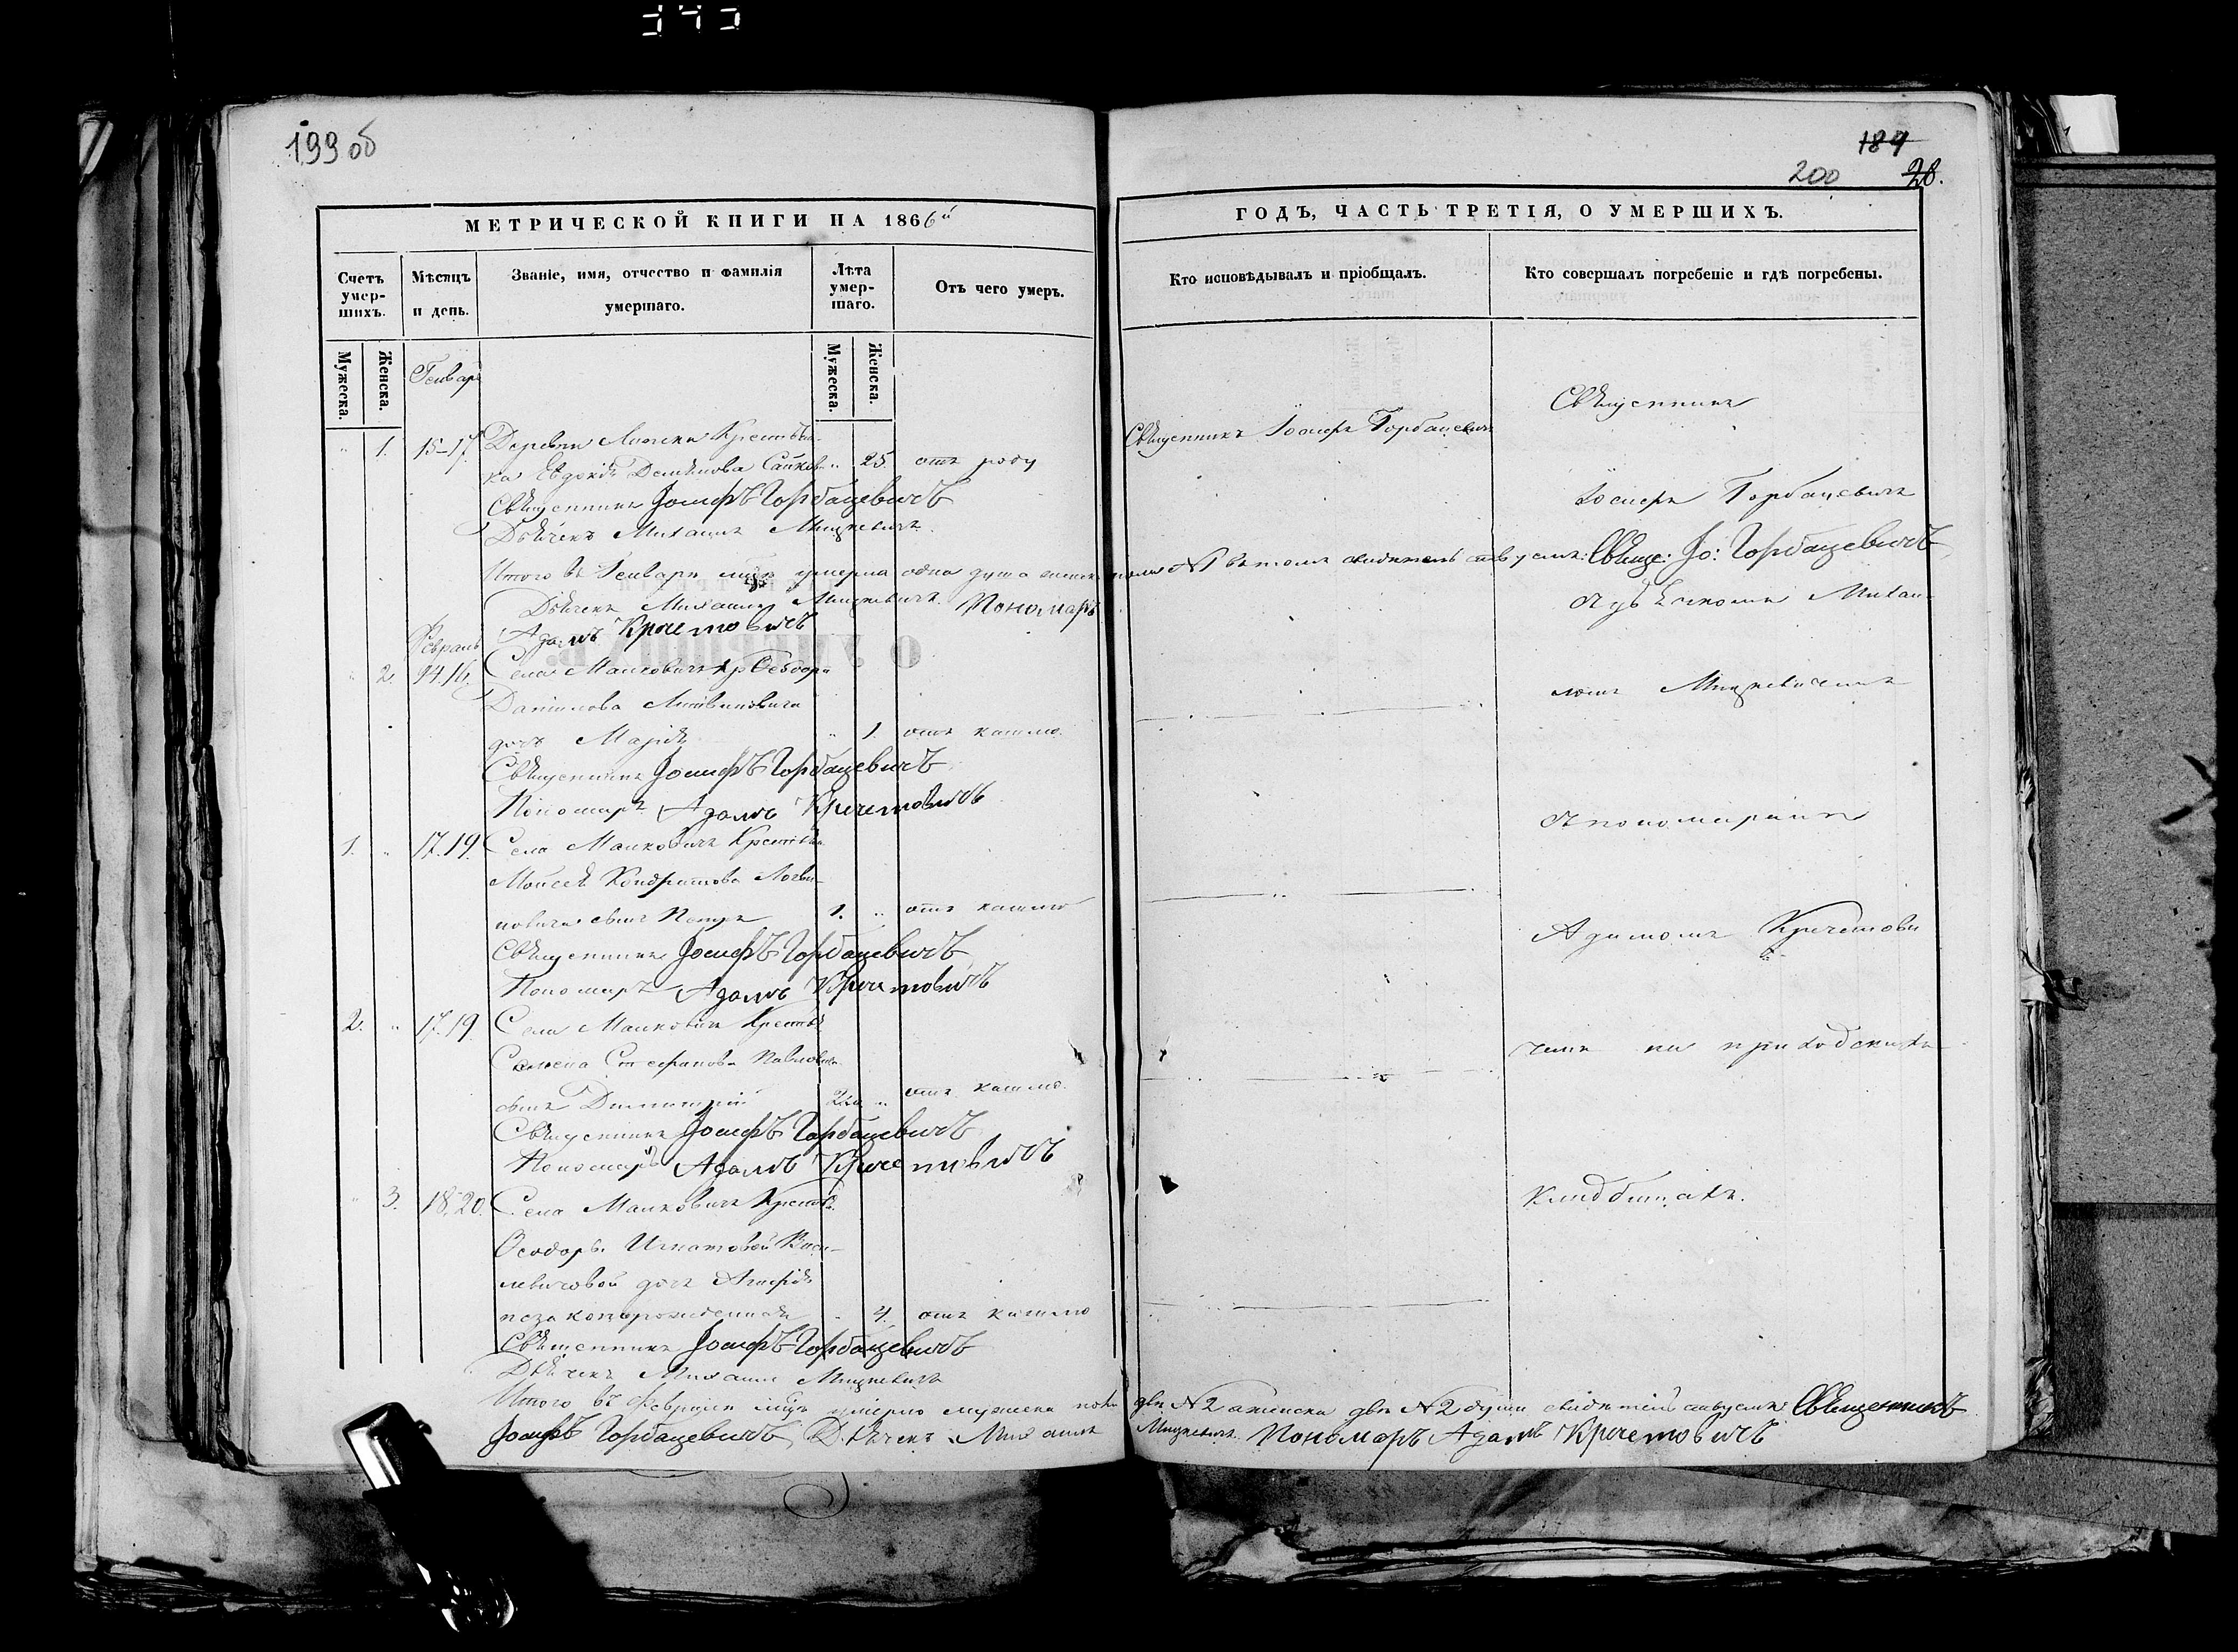 199 об
189
200 28.
МЕТРИЧЕСКОЙ КНИГИ НА 1866й
Счетъ умер-шихъ.
Мѣсяцъ и день.
Званіе, имя, отчество и фамилія умершаго.
Лѣта умер-шаго.
Отъ чего умеръ.
Мужеска.
Женска.
Генварь
Мужеска.
Женска.
1. 15-17. Деревни Крестьян-
ка Евдокія Демьянова 25. отъ роду
Священникъ Іосифъ Горбацевичъ
Дьячекъ Михаилъ Мицкевичъ
Итого въ Генварѣ мцѣ умерла одна душа
Дьячекъ Михаилъ Мицкевичъ Пономарь
Адамъ Кречетовичъ
Февраль
2. 14.16. Села Малковичъ кр Ѳеодора
Данилова Литвиновича
дочь Марія 1. отъ кашлю
Священникъ Іосифъ Горбацевичъ
Пономарь Адамъ Кречетовичъ
1. 17.19. Села Малковичъ Крестьян
Моисея Кондратова Логви-
новича сынъ Петръ 1. отъ кашлю
Священникъ Іосифъ Горбацевичъ
Пономарь Адамъ Кречетовичъ
2. 17.19. Села Малковичъ Крестья
Семена Стефанова Павлович
сынъ Димитрій отъ кашлю
Священникъ Іосифъ Горбацевичъ
Пономарь Адамъ Кречетовичъ
3. 18.20. Села Малковичъ Крестья
Ѳеодоры Игнатовой Васи-
левичовой дочь Агафія
незаконорожденная 4. отъ кашлю
Священникъ Іосифъ Горбацевичъ
Дьячекъ Михаилъ Мицкевичъ
Итого въ Февралѣ мцѣ умерло мужеска пола двѣ №2 а женска двѣ №2 души свидѣтельствуемъ Священникъ
Іосифъ Горбацевичъ Дьячекъ Михаилъ Мицкевичъ Пономарь Адамъ Кречетовичъ
ГОДЪ, ЧАСТЬ ТРЕТІЯ, О УМЕРШИХЪ.
Кто исповѣдывалъ и пріобщалъ.
Кто совершалъ погребеніе и гдѣ погребены.
Священникъ Іосифъ Горбацевичъ
Священникъ
Іосифъ Горбацевичъ
№1 въ томъ свидѣтельствуемъ: Свящ: Іо: Горбацевичъ
съ дьячкомъ Михаи-
ломъ Мицкевичемъ
и пономаремъ
Адамомъ Кречетови
чемъ на приходскихъ
кладбищахъ.